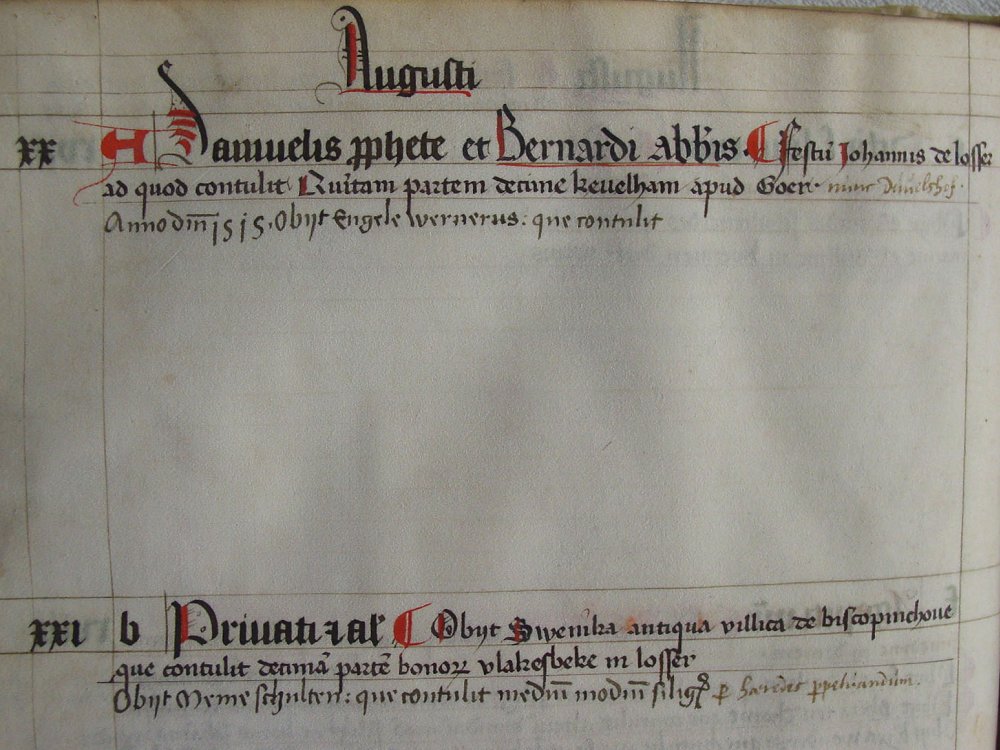 Augusti
xx A Samuelis pphete et Bernardi abbis. festu Johannis de losser
ad quod contulit partem decime kevelham apud Goer. nunc
Anno dm 1515. Obijt Engele Wernerus: que contulit
xxi b Privati et al Obijt Swenika antiqua villica de biscopinchove
que contulit decima parte bonor vlakesbeke in losser
Obijt Meme schulten: que contulit mediu modiu silig p haeredes ppetuandum.